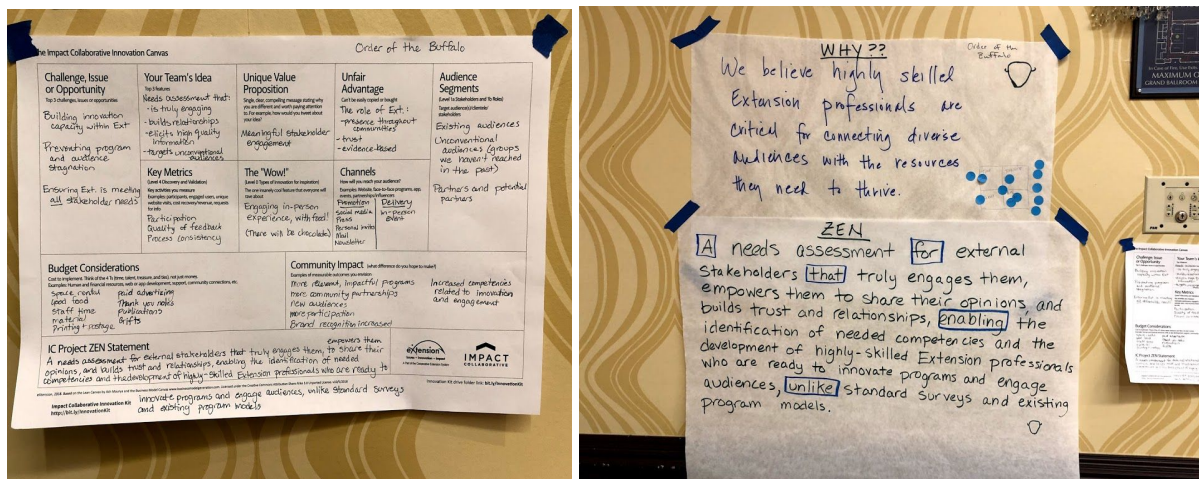 The Impact Collaborative Innovation Canvas
Order of the Buffalo
Challenge, Issue
or Opportunity
Top 3 challenges, issues or opportunities
Building innovation
capacity within Ext
Preventing program
and audience
stagnation
Ensuring Ext. is meeting
all stakeholder needs
Your Team's Idea
Top 3 features
Needs assessment that:
-is truly engaging
-builds relationships
-elicits high quality
information
-targets unconventional
audiences
Key Metrics
(Level 4 Discovery and Validation)
Key activities you measure
Examples: participants, engaged users, unique
website visits, cost recovery/revenue, requests
for info.
Participation
Quality of feedback
Process consistency
Unique Value
Proposition
Single, clear, compelling message stating why
you are different and worth paying attention
to. For example, how would you tweet about
your idea?
Meaningful stakeholder
engagement
The "Wow!"
(Level 5 Types of Innovation for inspiration)
The one insanely cool feature that everyone will
rave about
Engaging in-person
experience, with food!
(There will be chocolate)
Unfair
Advantage
Can't be easily copied or bought
The role of Ext.:
-presence throughout
communities
-trust
-evidence-based
Channels
How will you reach your audience?
Examples: Website, face-to-face programs, app,
events, partnerships/influencers
Promotion
Social media
Press
Personal invites
Mail
Newsletter
Delivery
in-person
event
Audience
Segments
(Level 1a Stakeholders and 1b Roles)
Target audience(s)/clientele/
stakeholders
Existing audiences
Unconventional
audiences (groups
we haven't reached
in the past)
Partners and potential
partners
Budget Considerations
Cost to implement. Think of the 4 T's (time, talent, treasure, and ties), not just money.
Examples: Human and financial resources, web or app development, support, community connections, etc.
Space rental
Good food
Staff time
material
Printing + postage
paid advertising
Thank you notes
Publications
Gifts
Community Impact (what difference do you hope to make?)
Examples of measurable outcomes you envision
More relevant, impactful programs
more community partnerships
new audiences
more participation
Brand recognition increased
Increased competencies
related to innovation
and engagement
IC Project ZEN Statement
empowers them
A needs assessment for external stakeholders that truly engages them, to share their
opinions, and builds trust and relationships, enabling the identification of needed
competencies and the development of highly-skilled Extension professionals who are ready to
innovate programs and engage audiences, unlike standard surveys
and existing program models
eXtension
IMPACT
COLLABORATIVE
Impact Collaborative Innovation Kit
http://bit.ly/InnovationKit
Innovation Kit drive folder link: bit.ly/InnovationKit
WHY??
Order of the
Buffalo
We believe highly skilled
Extension professionals are
critical for connecting diverse
audiences with the resources
they need to thrive.
ZEN
A needs assessment for external
stakeholders that truly engages them,
empowers them to share their opinions, and
builds trust and relationships, enabling the
identification of needed competencies and the
development of highly-skilled Extension professionals
who are ready to innovate programs and engage
audiences, unlike standard surveys and existing
program models.
MAXIMUM
GRAND BALLROOM
Challenge, Issue
or Opportunity
Your Team's
Key Metrics
Budget Considerations
IC Project ZEN Statement